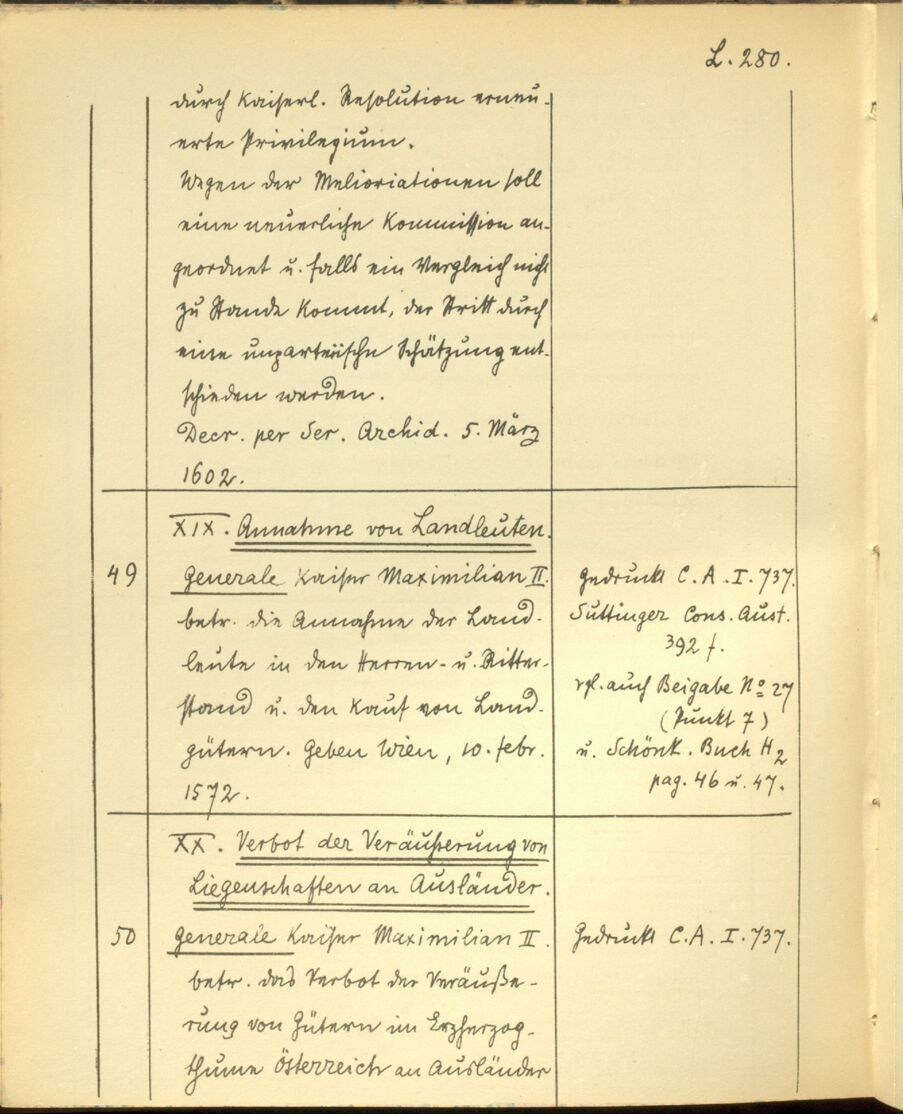 L. 280.
durch Kaiserl. Resolution erneu-
erte Privilegium.
Wegen der Melioriationen soll
eine neuerliche Kommission an-
geordnet u. falls ein Vergleich nicht
zu Stande kommt, der Streit durch
eine unparteiische Schätzung ent-
schieden werden.
Decr. per Ser. Archid. 5. März
1602.
XIX. Annahme von Landleuten.
49
Generale Kaiser Maximilian II.
betr. die Annahme der Land-
leute in den Herren- u. Ritter-
stand u. den Kauf von Land-
gütern. Geben Wien, 10. Febr.
1572.
Gedruckt C. A. I. 737.
Suttinger Cons. Aust.
392 f.
vgl. auch Beigabe No 27
(Punkt 7)
u. Schönk. Buch H2
pag. 46 u. 47.
XX. Verbot der Veräußerung von
Liegenschaften an Ausländer.
50
Generale Kaiser Maximilian II.
betr. das Verbot der Veräuße-
rung von Gütern im Erzherzog-
thume Österreich an Ausländer
Gedruckt C. A. I. 737.